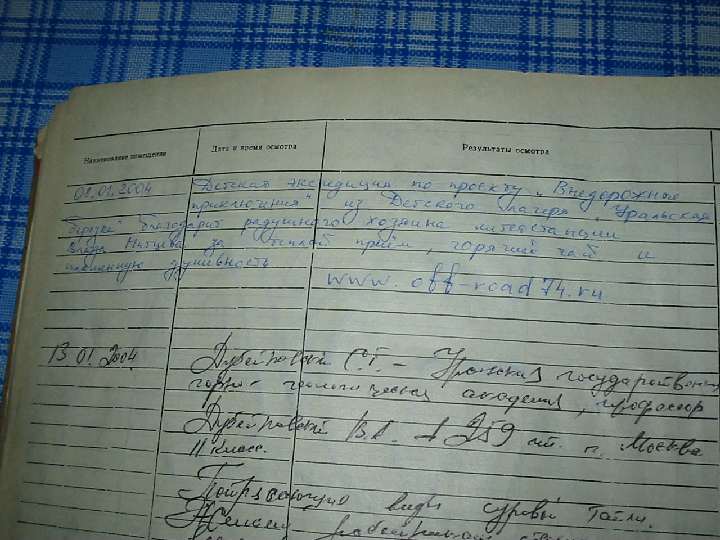 Наименование помещения
Дата и время осмотра
Результаты осмотра
02.01.2004 Детская экспедиция по проекту "Внедорожные
приключения" из Детского лагеря "Уральская
берёзка" благодарит радушного хозяина метеостанции
за тёплый приём, горячий чай и
душевность
www.off-road74.ru
13.01.2004. Дубейковский С.Г. - Уральская государственная
горно-геологическая академия, профессор
Дубейковский В.С. - 259 шк. г. Москва
11 класс.
Потрясающие виды суровой тайги.
Желаем